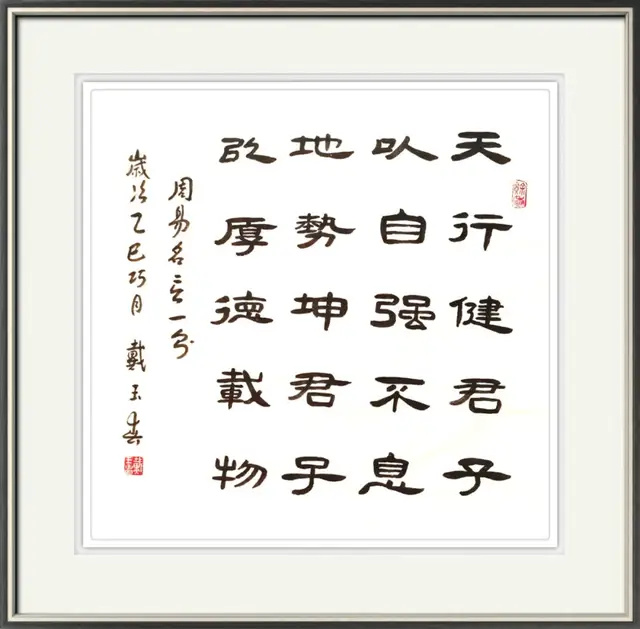 天行健君子
以自强不息
地势坤君子
以厚德載物
周易名言一则
歲次乙巳巧月 戴玉春